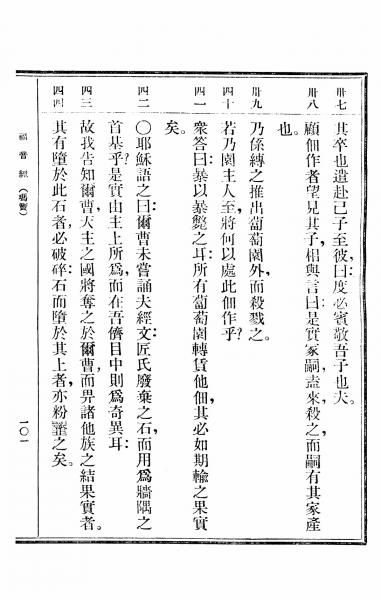 卅七 其卒也遣赴己子至彼曰度必賓敬吾子也夫。
卅八 顧佃作者望見其子相與言曰是實冢嗣盍來殺之而嗣有其家產
也。
卅九 乃係縛之推出葡萄園外而殺戮之。
四十 若乃園主人至將何以處此佃作乎？
四一 衆答曰暴以暴斃之耳：所有葡萄園轉賃他佃，其必如期輸之果實
矣。
四二 〇耶穌語之曰：爾曹未嘗誦夫經文：匠氏廢棄之石而用爲牆隅之
首基乎？是實由主上所爲，而在吾儕目中則爲奇異耳：
四三 故我告知爾曹，天主之國將奪之於爾曹，而畀諸他族之結果實者。
四四 其有墮於此石者，必破碎石而墮於其上者，亦粉之矣。
福音經（瑪竇）
一〇一